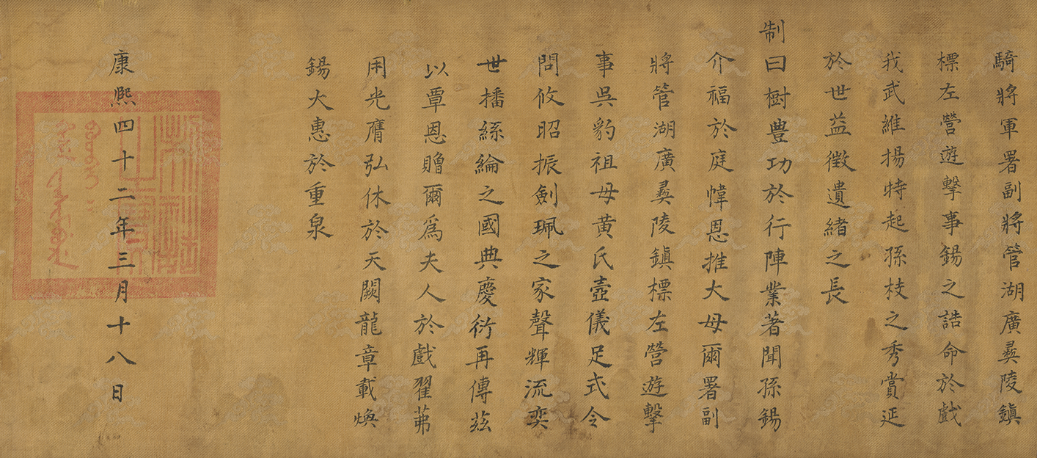 騎將軍署副將管湖廣彛陵鎮
標左營遊擊事錫之誥命於戲
我武維揚特起孫枝之秀賞延
於世益徵遺緒之長
制曰樹豊功於行陣業著聞孫錫
介福於庭幃恩推大母爾署副
將管湖廣彛陵鎮標左營遊擊
事吳豹祖母黃氏壼儀足式令
問攸昭振劍珮之家聲輝流奕
世播絲綸之國典慶衍再傳茲
以覃恩贈爾爲夫人於戲翟茀
用光膺弘休於天闕龍章載煥
錫大惠於重泉
康熙四十二年三月十八日